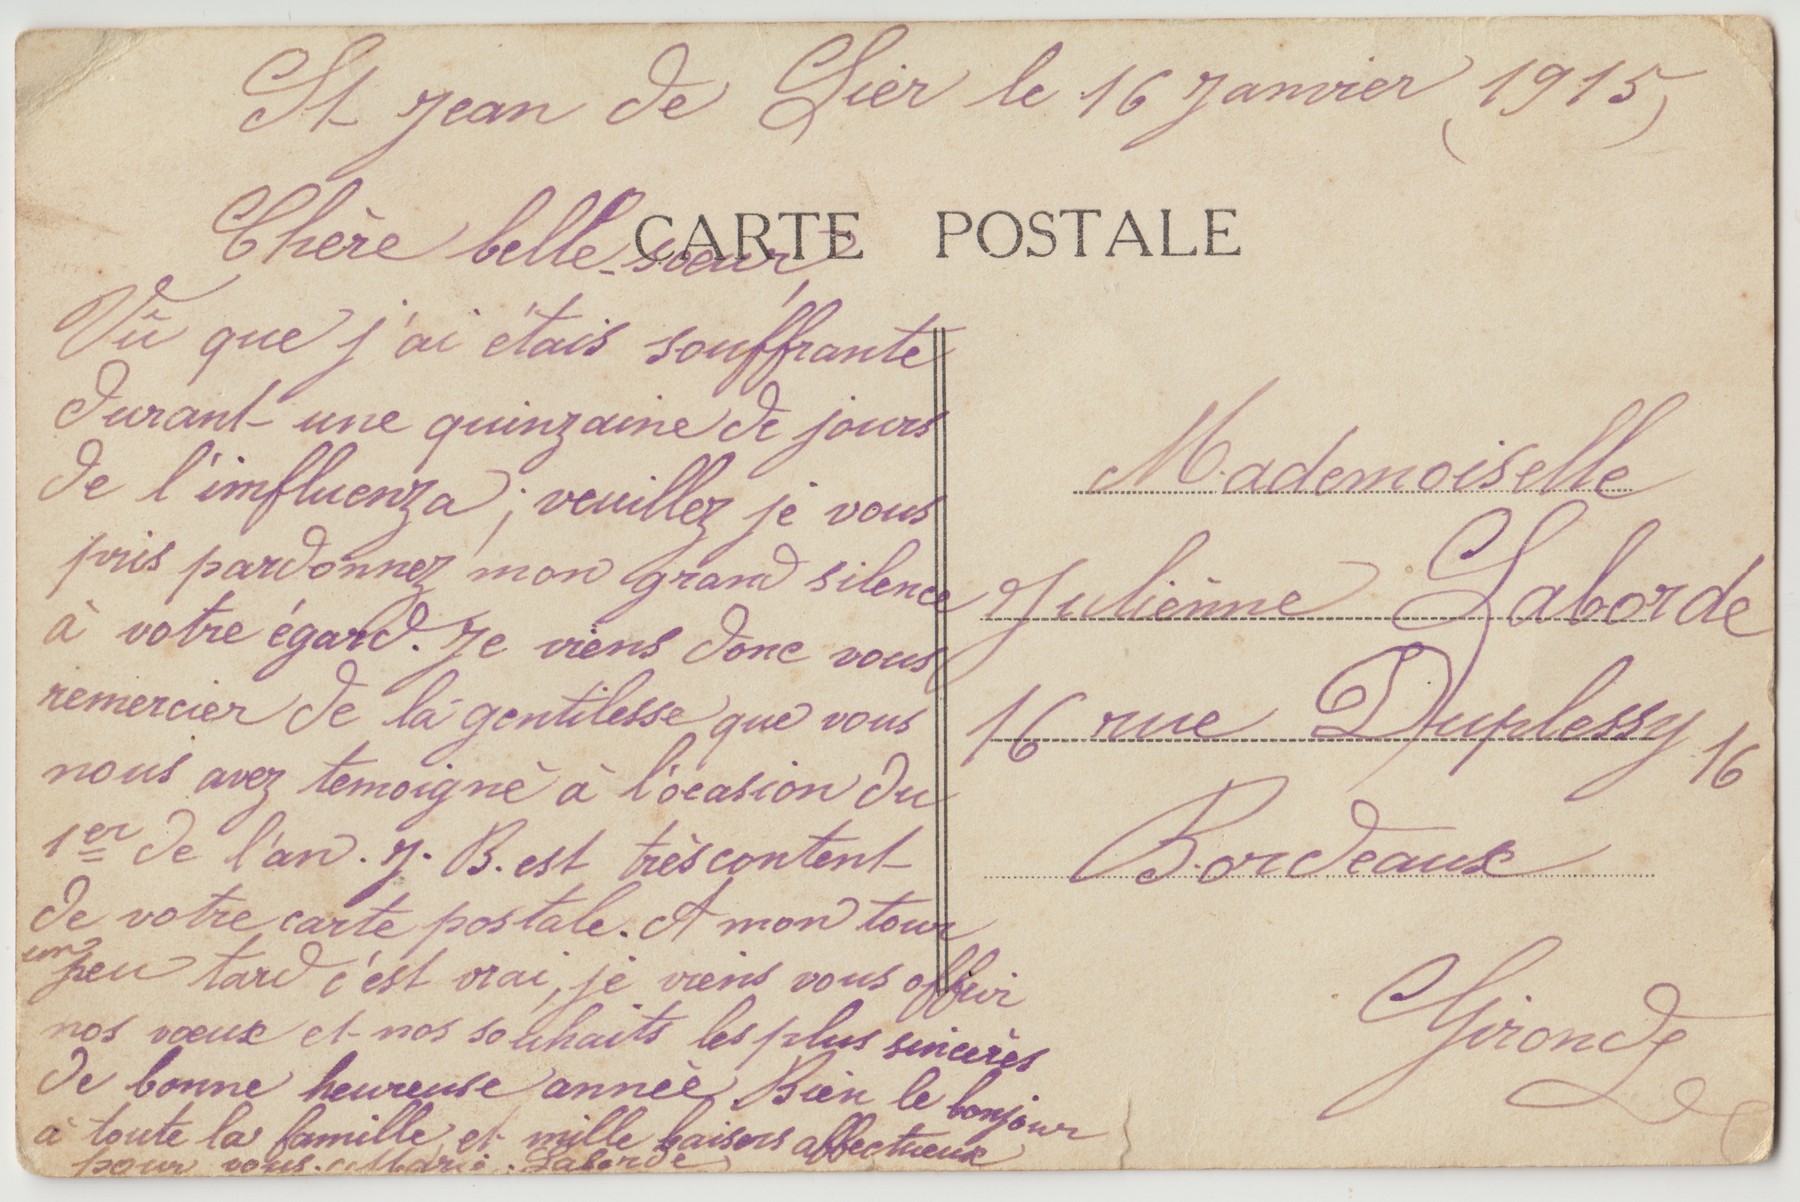 St Jean de Lier le 16 Janvier (1915)
CARTE POSTALE
Chère belle-sœur,
Vû que j'ai étais souffrante
durant une quinzaine de jours
de l'imfluenza; veuillez je vous
pris pardonnez mon grand silence
à votre égard. Je viens donc vous
remercier de la gentilesse que vous
nous avez temoigné à l'ocasion du
1er de l'an. J. B. est très content
de votre carte postale. A mon tour
un peu tard c'est vrai, je viens vous offrir
nos vœux et nos souhaits les plus sincères
de bonne heureuse année. Bien le bonjour
à toute la famille et mille baisers affectueux
pour vous. Marie Laborde
Mademoiselle
Julienne Laborde
16 rue Duplessy 16
Bordeaux
Gironde